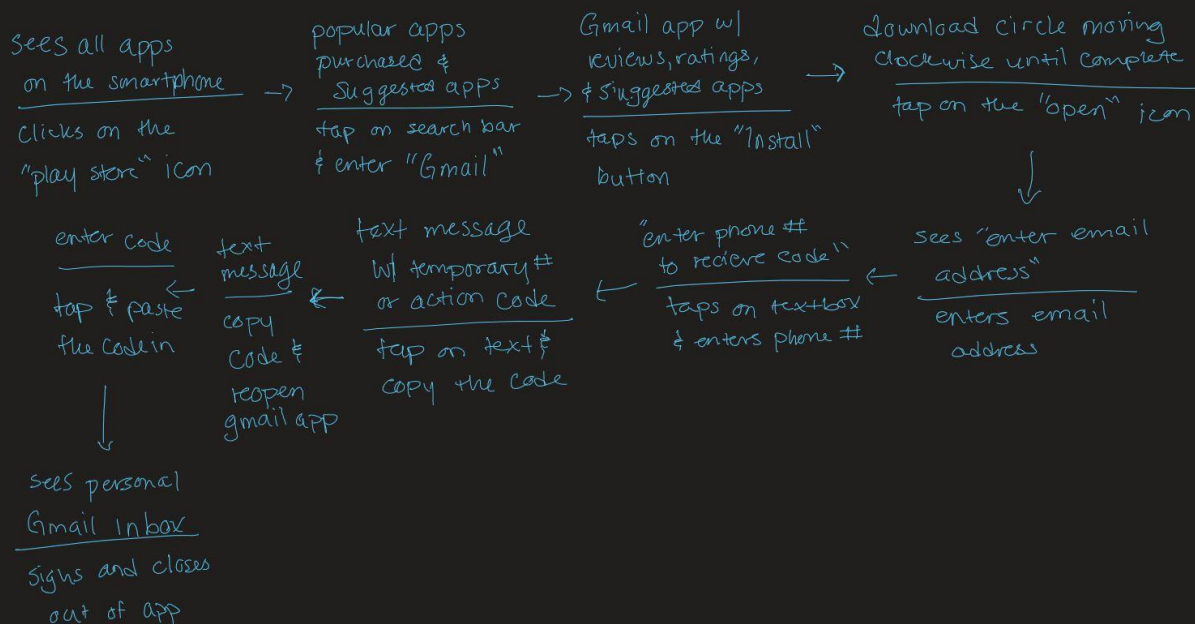 sees all apps
on the smartphone
clicks on the
"play store" icon
popular apps
purchased &
suggested apps
tap on search bar
& enter "Gmail"
Gmail app w/
reviews, ratings,
& suggested apps
taps on the "Install"
button
download circle moving
clockwise until complete
tap on the "open" icon
sees "enter email
address"
enters email
address
"enter phone #
to recieve code"
taps on textbox
& enters phone #
text message
w/ temporary #
or action code
tap on text &
copy the code
text
message
copy
code &
reopen
gmail app
enter code
tap & paste
the code in
sees personal
Gmail inbox
sighs and closes
out of app